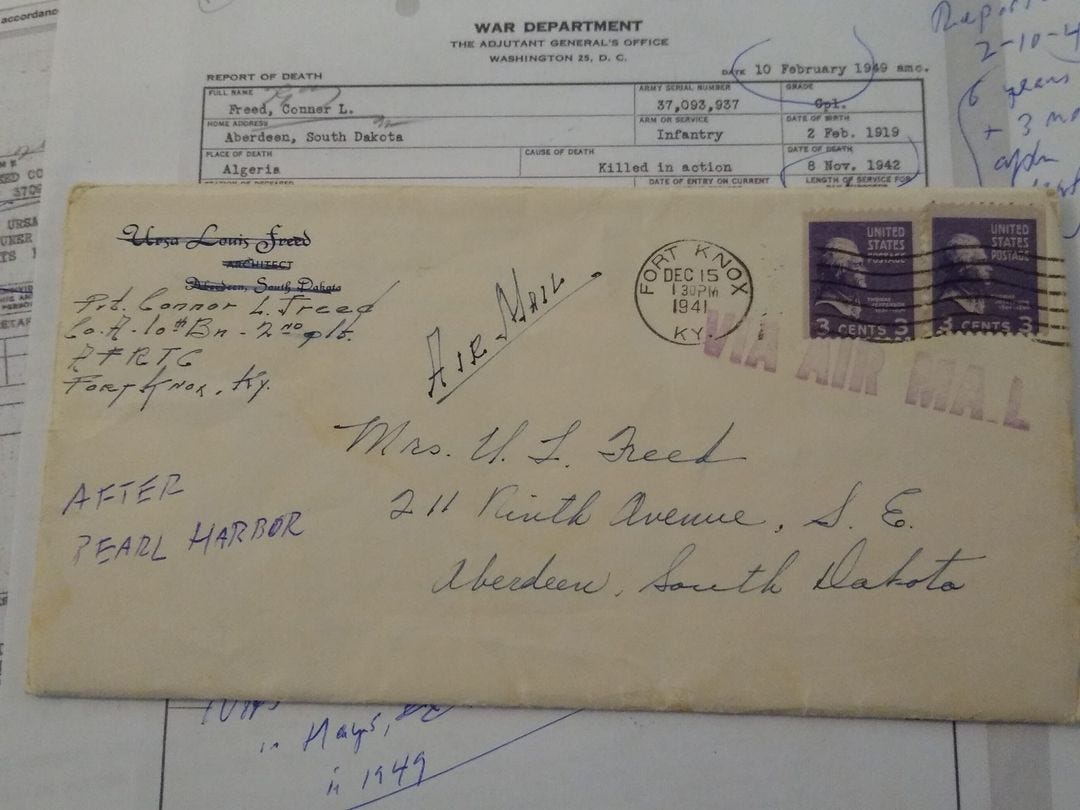 accordanc
Report
2-10-4
6 years
+ 3 mo
WAR DEPARTMENT
THE ADJUTANT GENERAL'S OFFICE
WASHINGTON 25, D. C.
REPORT OF DEATH
DATE 10 February 1949 amc.
FULL NAME
ARMY SERIAL NUMBER
GRADE
Freed, Conner L.
37,093,937
Cpl.
HOME ADDRESS
ARM OR SERVICE
DATE OF BIRTH
Aberdeen, South Dakota
Infantry
2 Feb. 1919
PLACE OF DEATH
CAUSE OF DEATH
DATE OF DEATH
Algeria
Killed in action
8 Nov. 1942
STATION OF DECEASED
DATE OF ENTRY ON CURRENT
LENGTH OF SERVICE FOR
ED CO
3709
URSA
Ursa Louis Freed
ARCHITECT
Aberdeen, South Dakota
Pvt. Connor L. Freed
Co. A - 10th Bn - 2nd plt.
AFRTC
Fort Knox, Ky.
AIR MAIL
FORT KNOX
DEC 15
1 30 PM
1941
KY.
UNITED
STATES
POSTAGE
THOMAS
JEFFERSON
3 CENTS 3
UNITED
STATES
POSTAGE
3 CENTS 3
VIA AIR MAIL
Mrs. U. L. Freed
211 Ninth Avenue, S. E.
Aberdeen, South Dakota
AFTER
PEARL HARBOR
in Hays,
in 1949